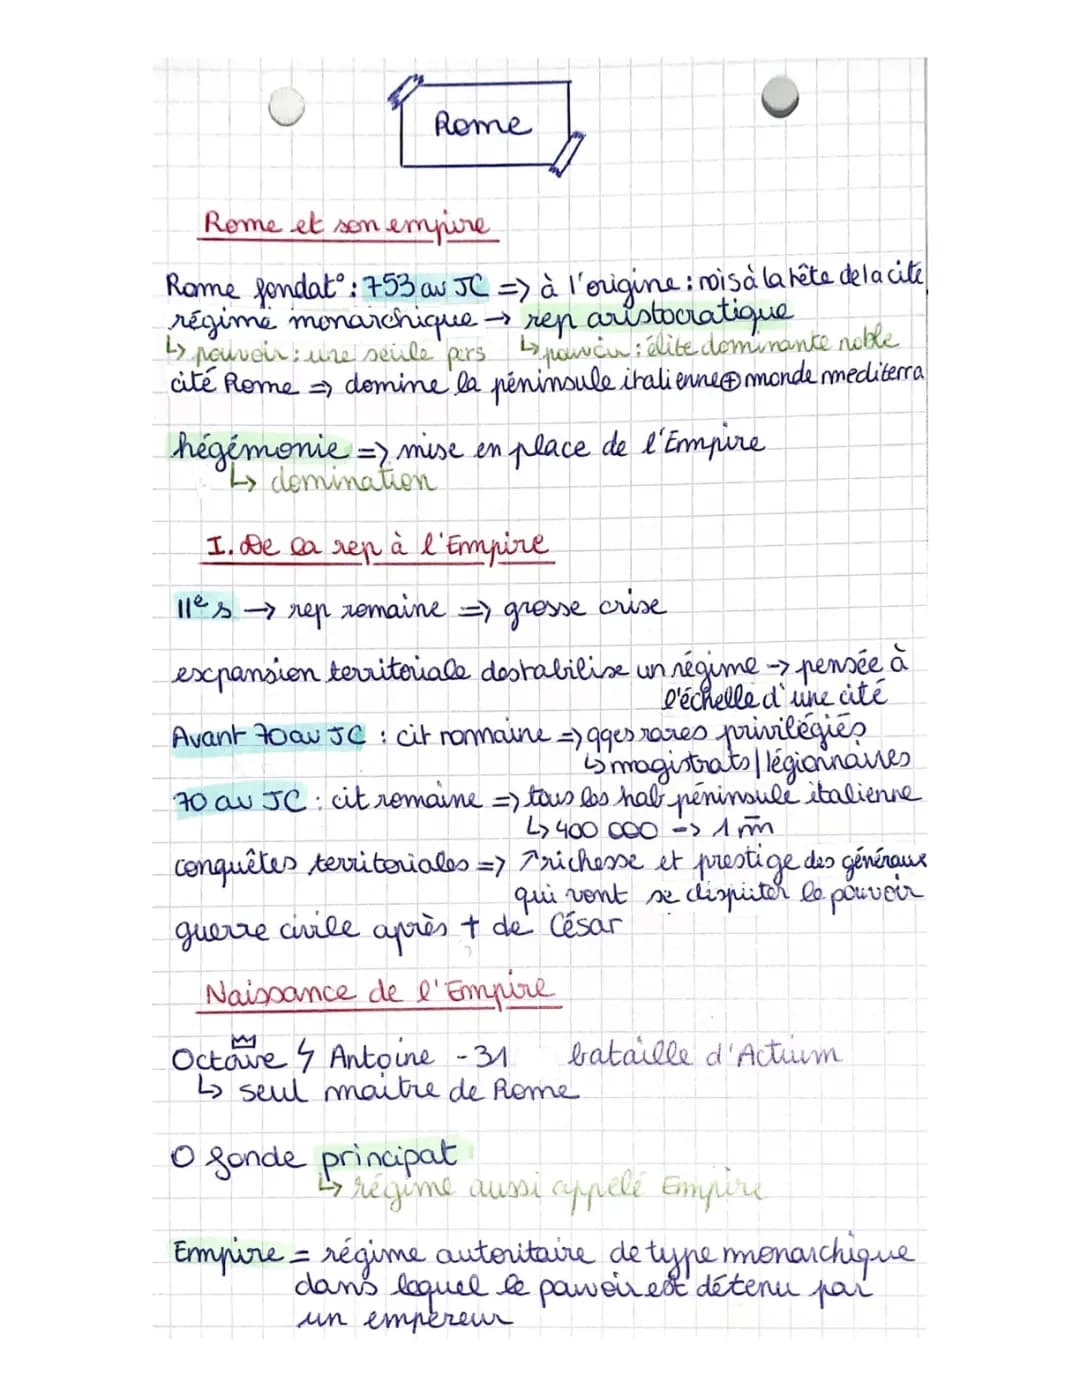 Rome
Rome et son empire
Rome fondat° : 753 av JC => à l'origine : rois à la tête de la cité
régime monarchique → rep aristocratique
↳ pouvoir : une seule pers ↳ pouvoir : élite dominante noble
cité Rome => domine la péninsule italienne ⊕ monde mediterra
hégémonie => mise en place de l'Empire
↳ domination
I. De la rep à l'Empire
IIe s → rep romaine => grosse crise
expansion territoriale destabilise un régime → pensée à
l'échelle d'une cité
Avant 70 av JC : cit romaine => qques rares privilégiés
↳ magistrats / légionnaires
70 av JC : cit romaine => tous les hab péninsule italienne
↳ 400 000 -> 1 m̅
conquêtes territoriales => ↗ richesse et prestige des généraux
qui vont se disputer le pouvoir
guerre civile après † de César
Naissance de l'Empire
Octave ϟ Antoine - 31 bataille d'Actium
↳ seul maitre de Rome
O fonde principat
↳ régime aussi appelé Empire
Empire = régime autoritaire de type monarchique
dans lequel le pouvoir est détenu par
un empereur